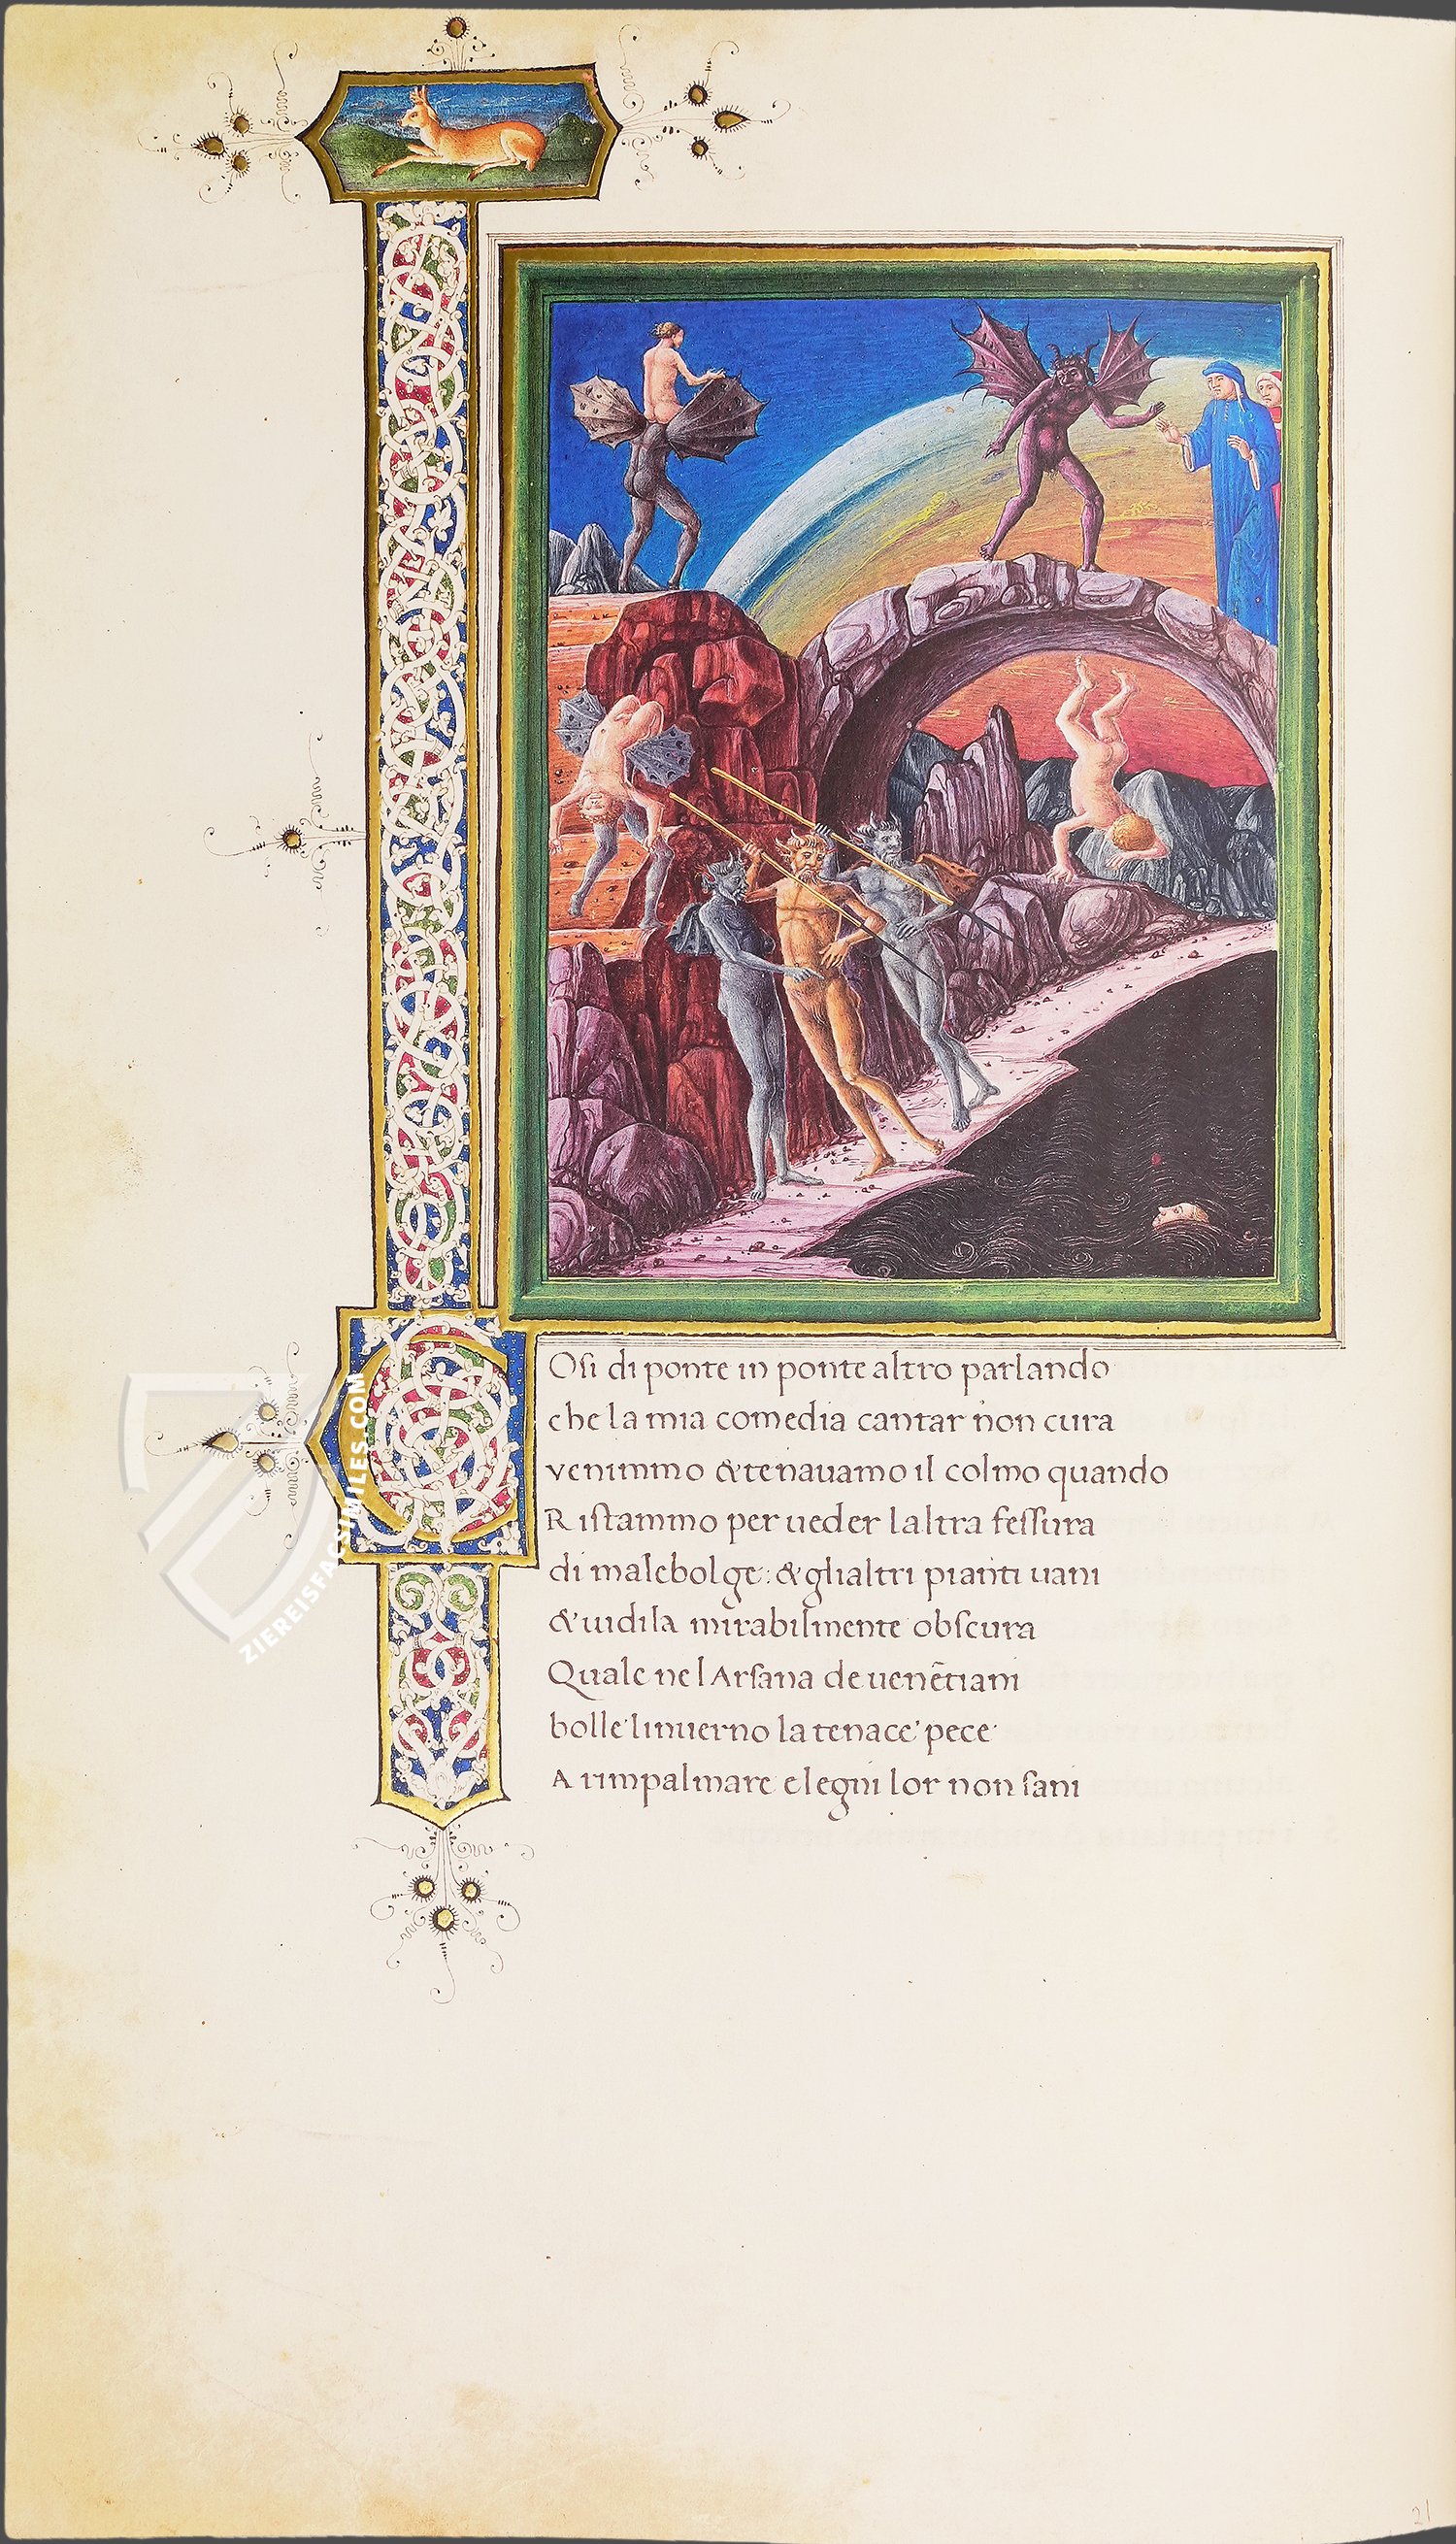 COsi di ponte in ponte altro parlando
che la mia comedia cantar non cura
venimmo & tenauamo il colmo quando
Ristammo per ueder laltra fessura
di malebolge: & glialtri pianti uani
& uidila mirabilmente obscura
Quale nel Arsana de uenētiani
bolle linuerno la tenace pece
A rimpalmare e legni lor non sani
ZIEREISFACSIMILES.COM
21